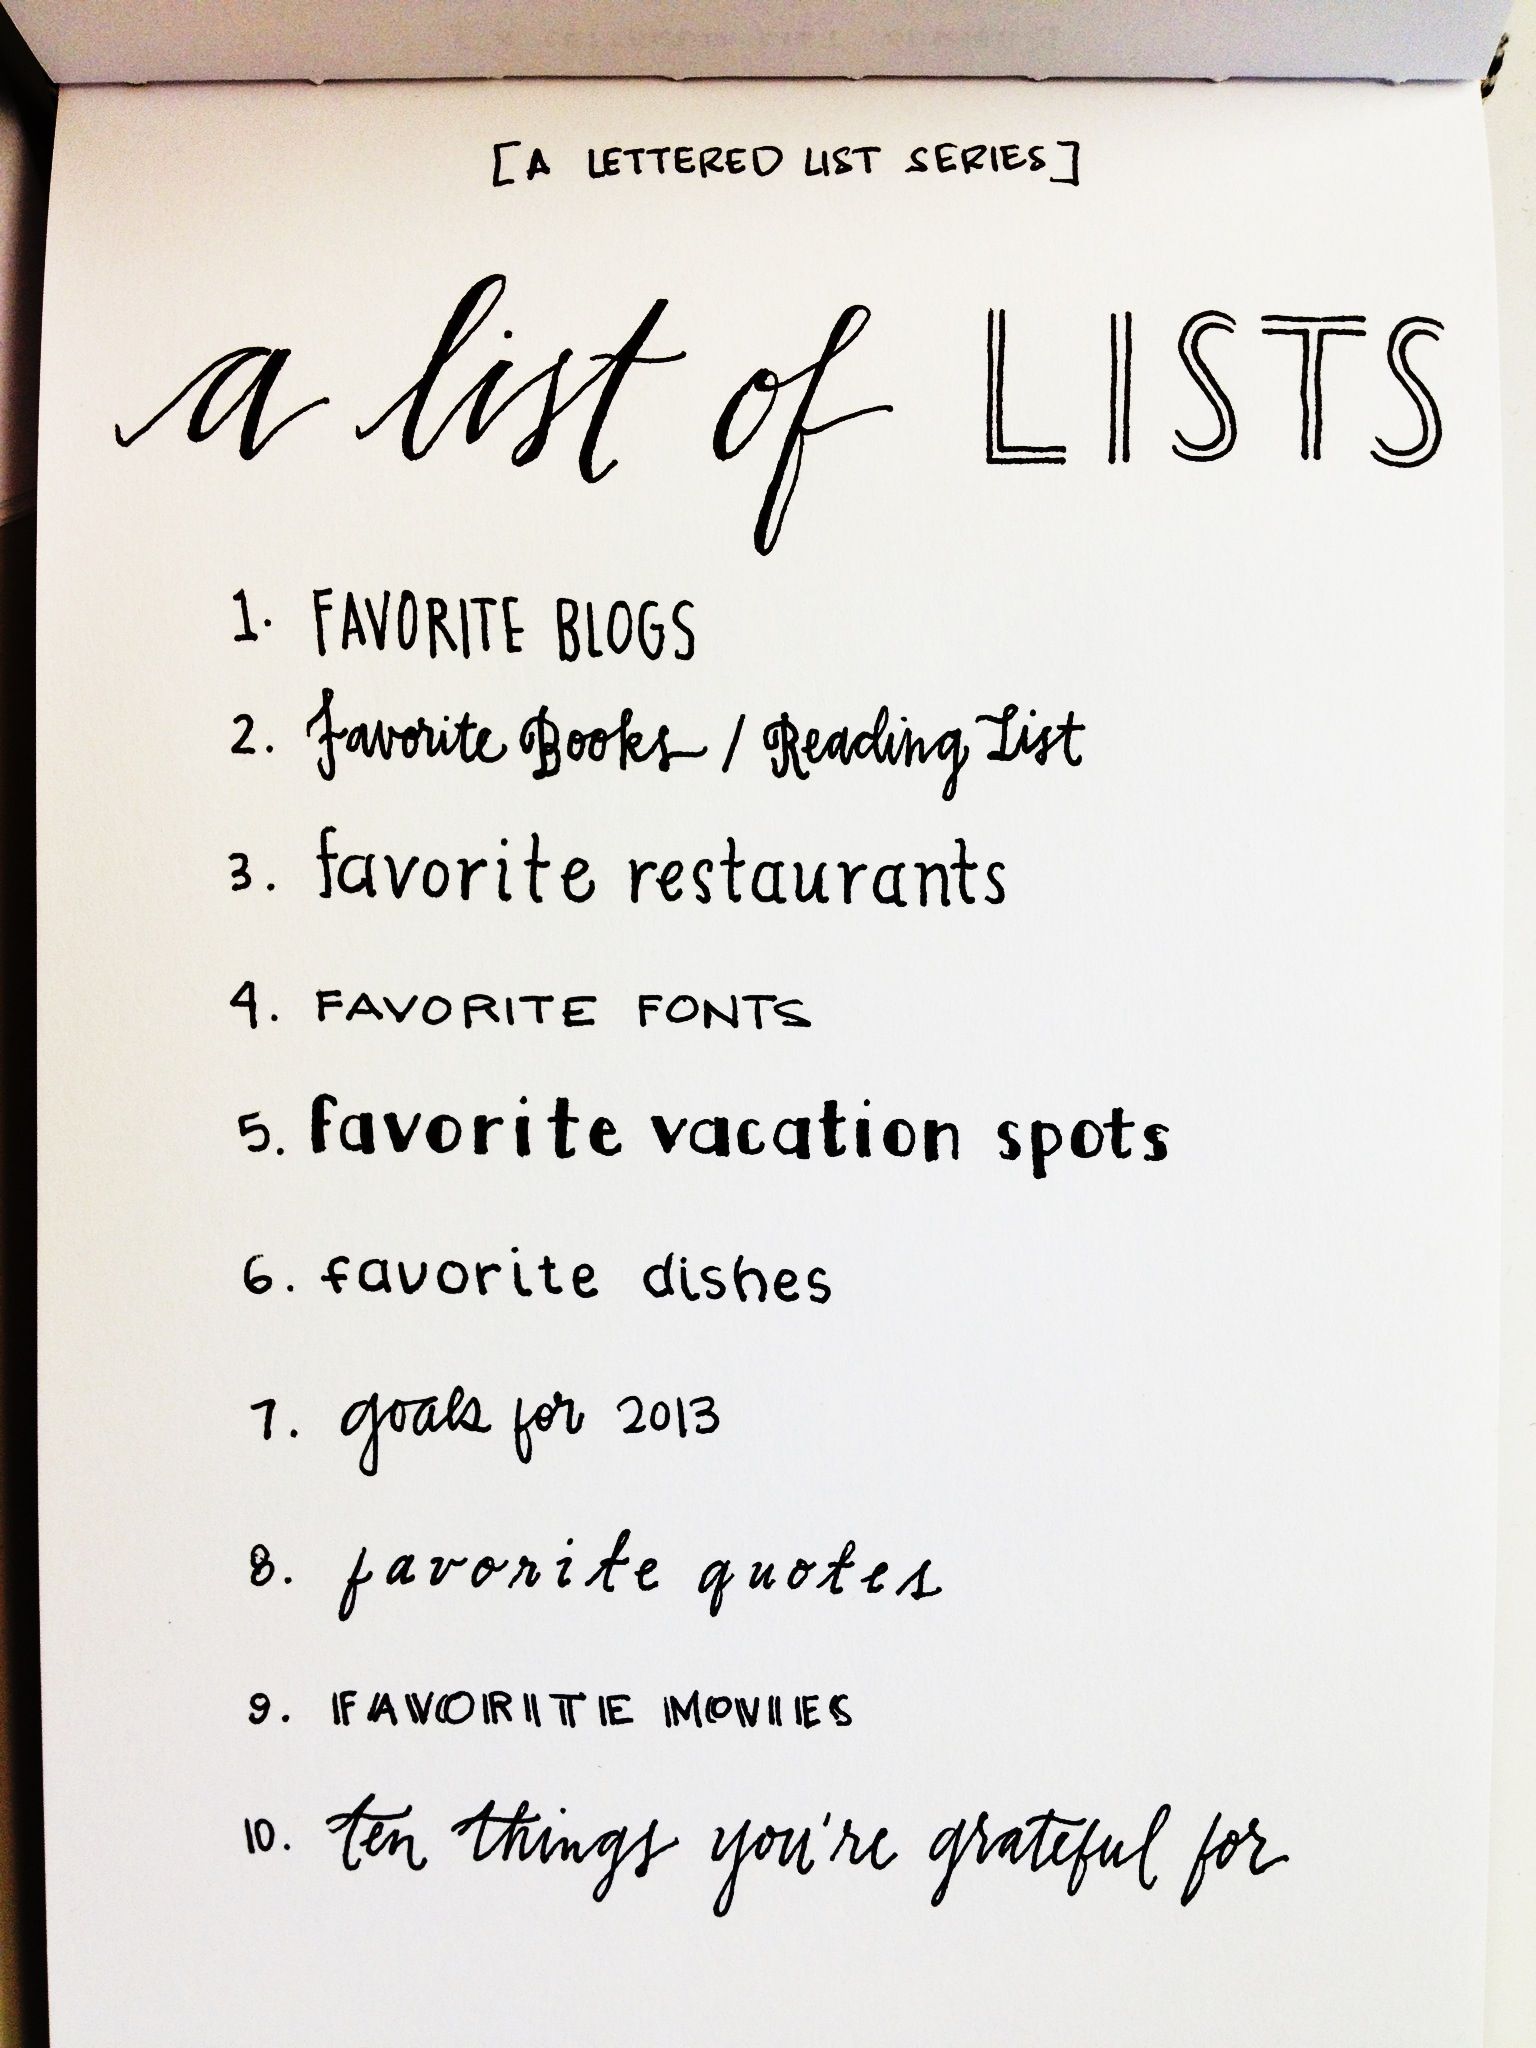 [A LETTERED LIST SERIES]
a list of LISTS
1. FAVORITE BLOGS
2. Favorite Books / Reading List
3. favorite restaurants
4. FAVORITE FONTS
5. favorite vacation spots
6. favorite dishes
7. goals for 2013
8. favorite quotes
9. FAVORITE MOVIES
10. ten things you're grateful for